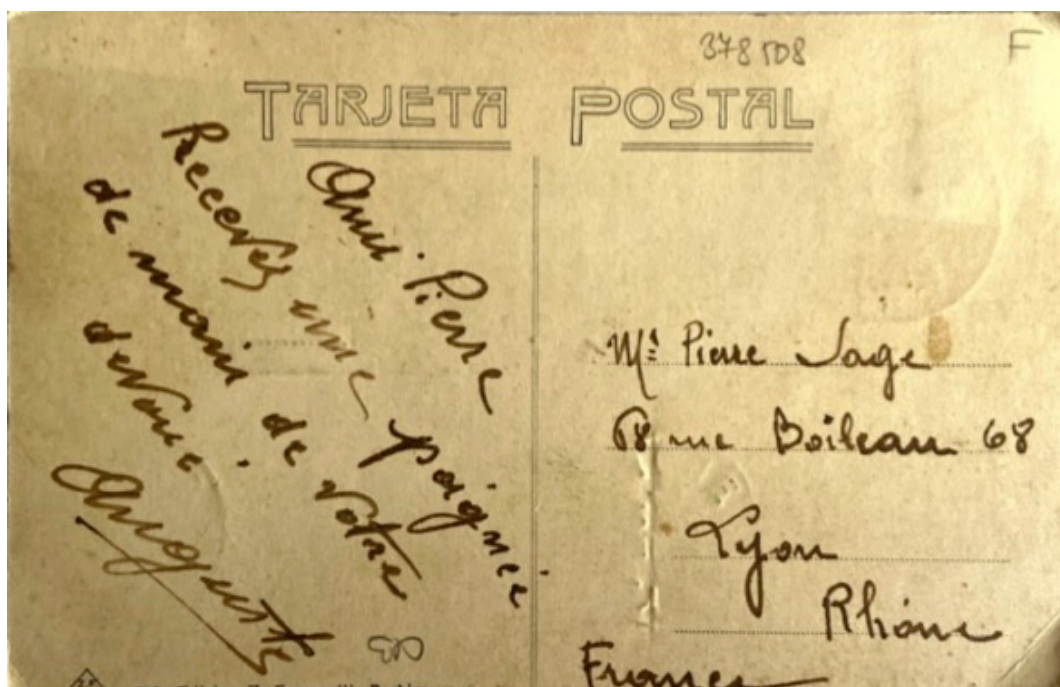 378508
F
TARJETA POSTAL
Ami Pierre
Recevez une poignée
de main de votre
dévoué
Auguste
Mr Pierre Sage
68 rue Boileau 68
Lyon
Rhône
France